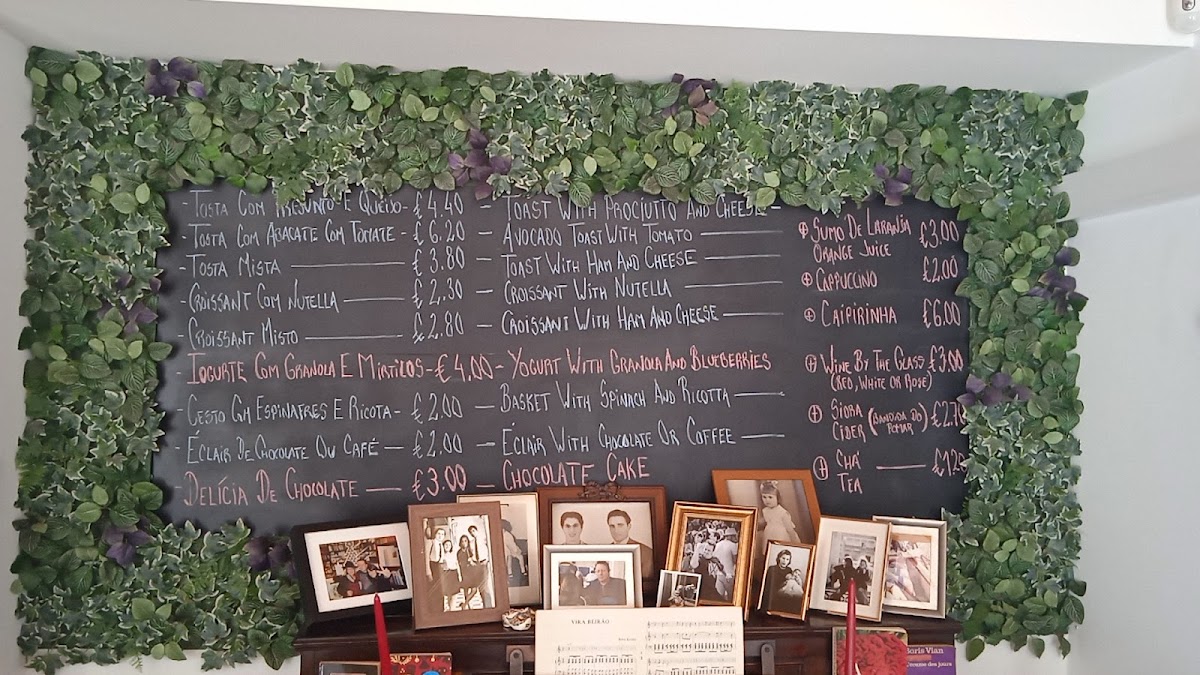 - Tosta Com Presunto E Queijo - £4.40 - Toast With Prociutto And Cheese -
- Tosta Com Abacate Com Tomate - £6.20 - Avocado Toast With Tomato
- Tosta Mista £3.80 - Toast With Ham And Cheese
- Croissant Com Nutella £2.30 - Croissant With Nutella
- Croissant Misto £2.80 - Croissant With Ham And Cheese
- Iogurte Com Granola E Mirtilos - €4.00 - Yogurt With Granola And Blueberries
- Cesto Com Espinafres E Ricota - £2.00 - Basket With Spinach And Ricotta
- Éclair De Chocolate Ou Café £2.00 - Éclair With Chocolate Or Coffee
- Delícia De Chocolate £3.00 Chocolate Cake
Sumo De Laranja £3.00
Orange Juice
Cappuccino £2.00
Caipirinha £6.00
Wine By The Glass £3.00
(Red, White Or Rosé)
Sidra £2.70
Cider (Bandida Do Pomar)
Chá £1.20
Tea
Vira Beirão
Boris Vian
L'écume des jours